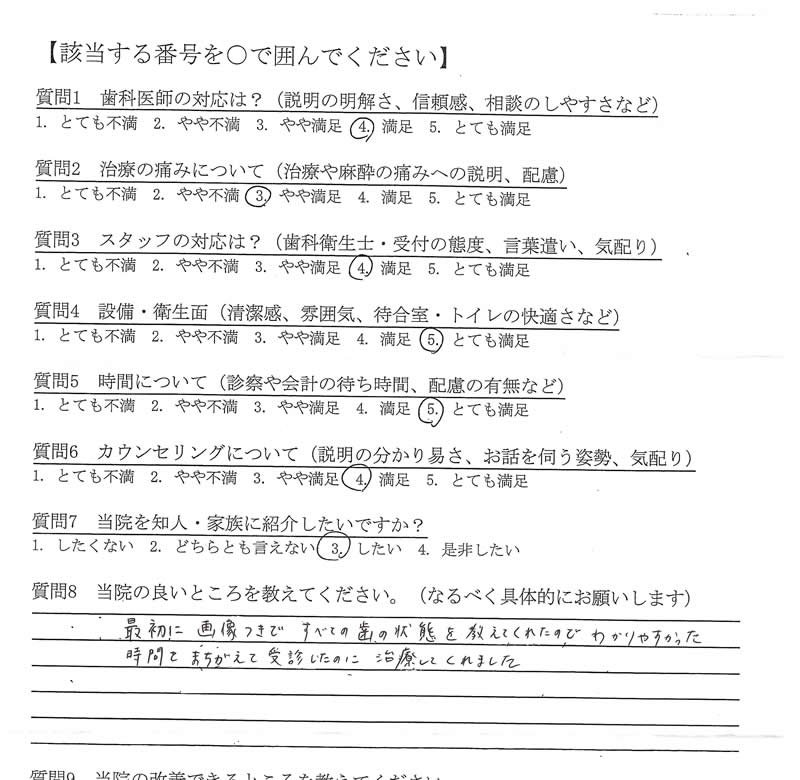 【該当する番号を〇で囲んでください】
質問1 歯科医師の対応は？（説明の明解さ、信頼感、相談のしやすさなど）
1. とても不満 2. やや不満 3. やや満足 4. 満足 5. とても満足
質問2 治療の痛みについて（治療や麻酔の痛みへの説明、配慮）
1. とても不満 2. やや不満 3. やや満足 4. 満足 5. とても満足
質問3 スタッフの対応は？（歯科衛生士・受付の態度、言葉遣い、気配り）
1. とても不満 2. やや不満 3. やや満足 4. 満足 5. とても満足
質問4 設備・衛生面（清潔感、雰囲気、待合室・トイレの快適さなど）
1. とても不満 2. やや不満 3. やや満足 4. 満足 5. とても満足
質問5 時間について（診察や会計の待ち時間、配慮の有無など）
1. とても不満 2. やや不満 3. やや満足 4. 満足 5. とても満足
質問6 カウンセリングについて（説明の分かり易さ、お話を伺う姿勢、気配り）
1. とても不満 2. やや不満 3. やや満足 4. 満足 5. とても満足
質問7 当院を知人・家族に紹介したいですか？
1. したくない 2. どちらとも言えない 3. したい 4. 是非したい
質問8 当院の良いところを教えてください。（なるべく具体的にお願いします）
最初に 画像つきで すべての歯の状態を教えてくれたので わかりやすかった
時間をまちがえて受診したのに 治療してくれました
質問9 当院の改善できるところを教えてください